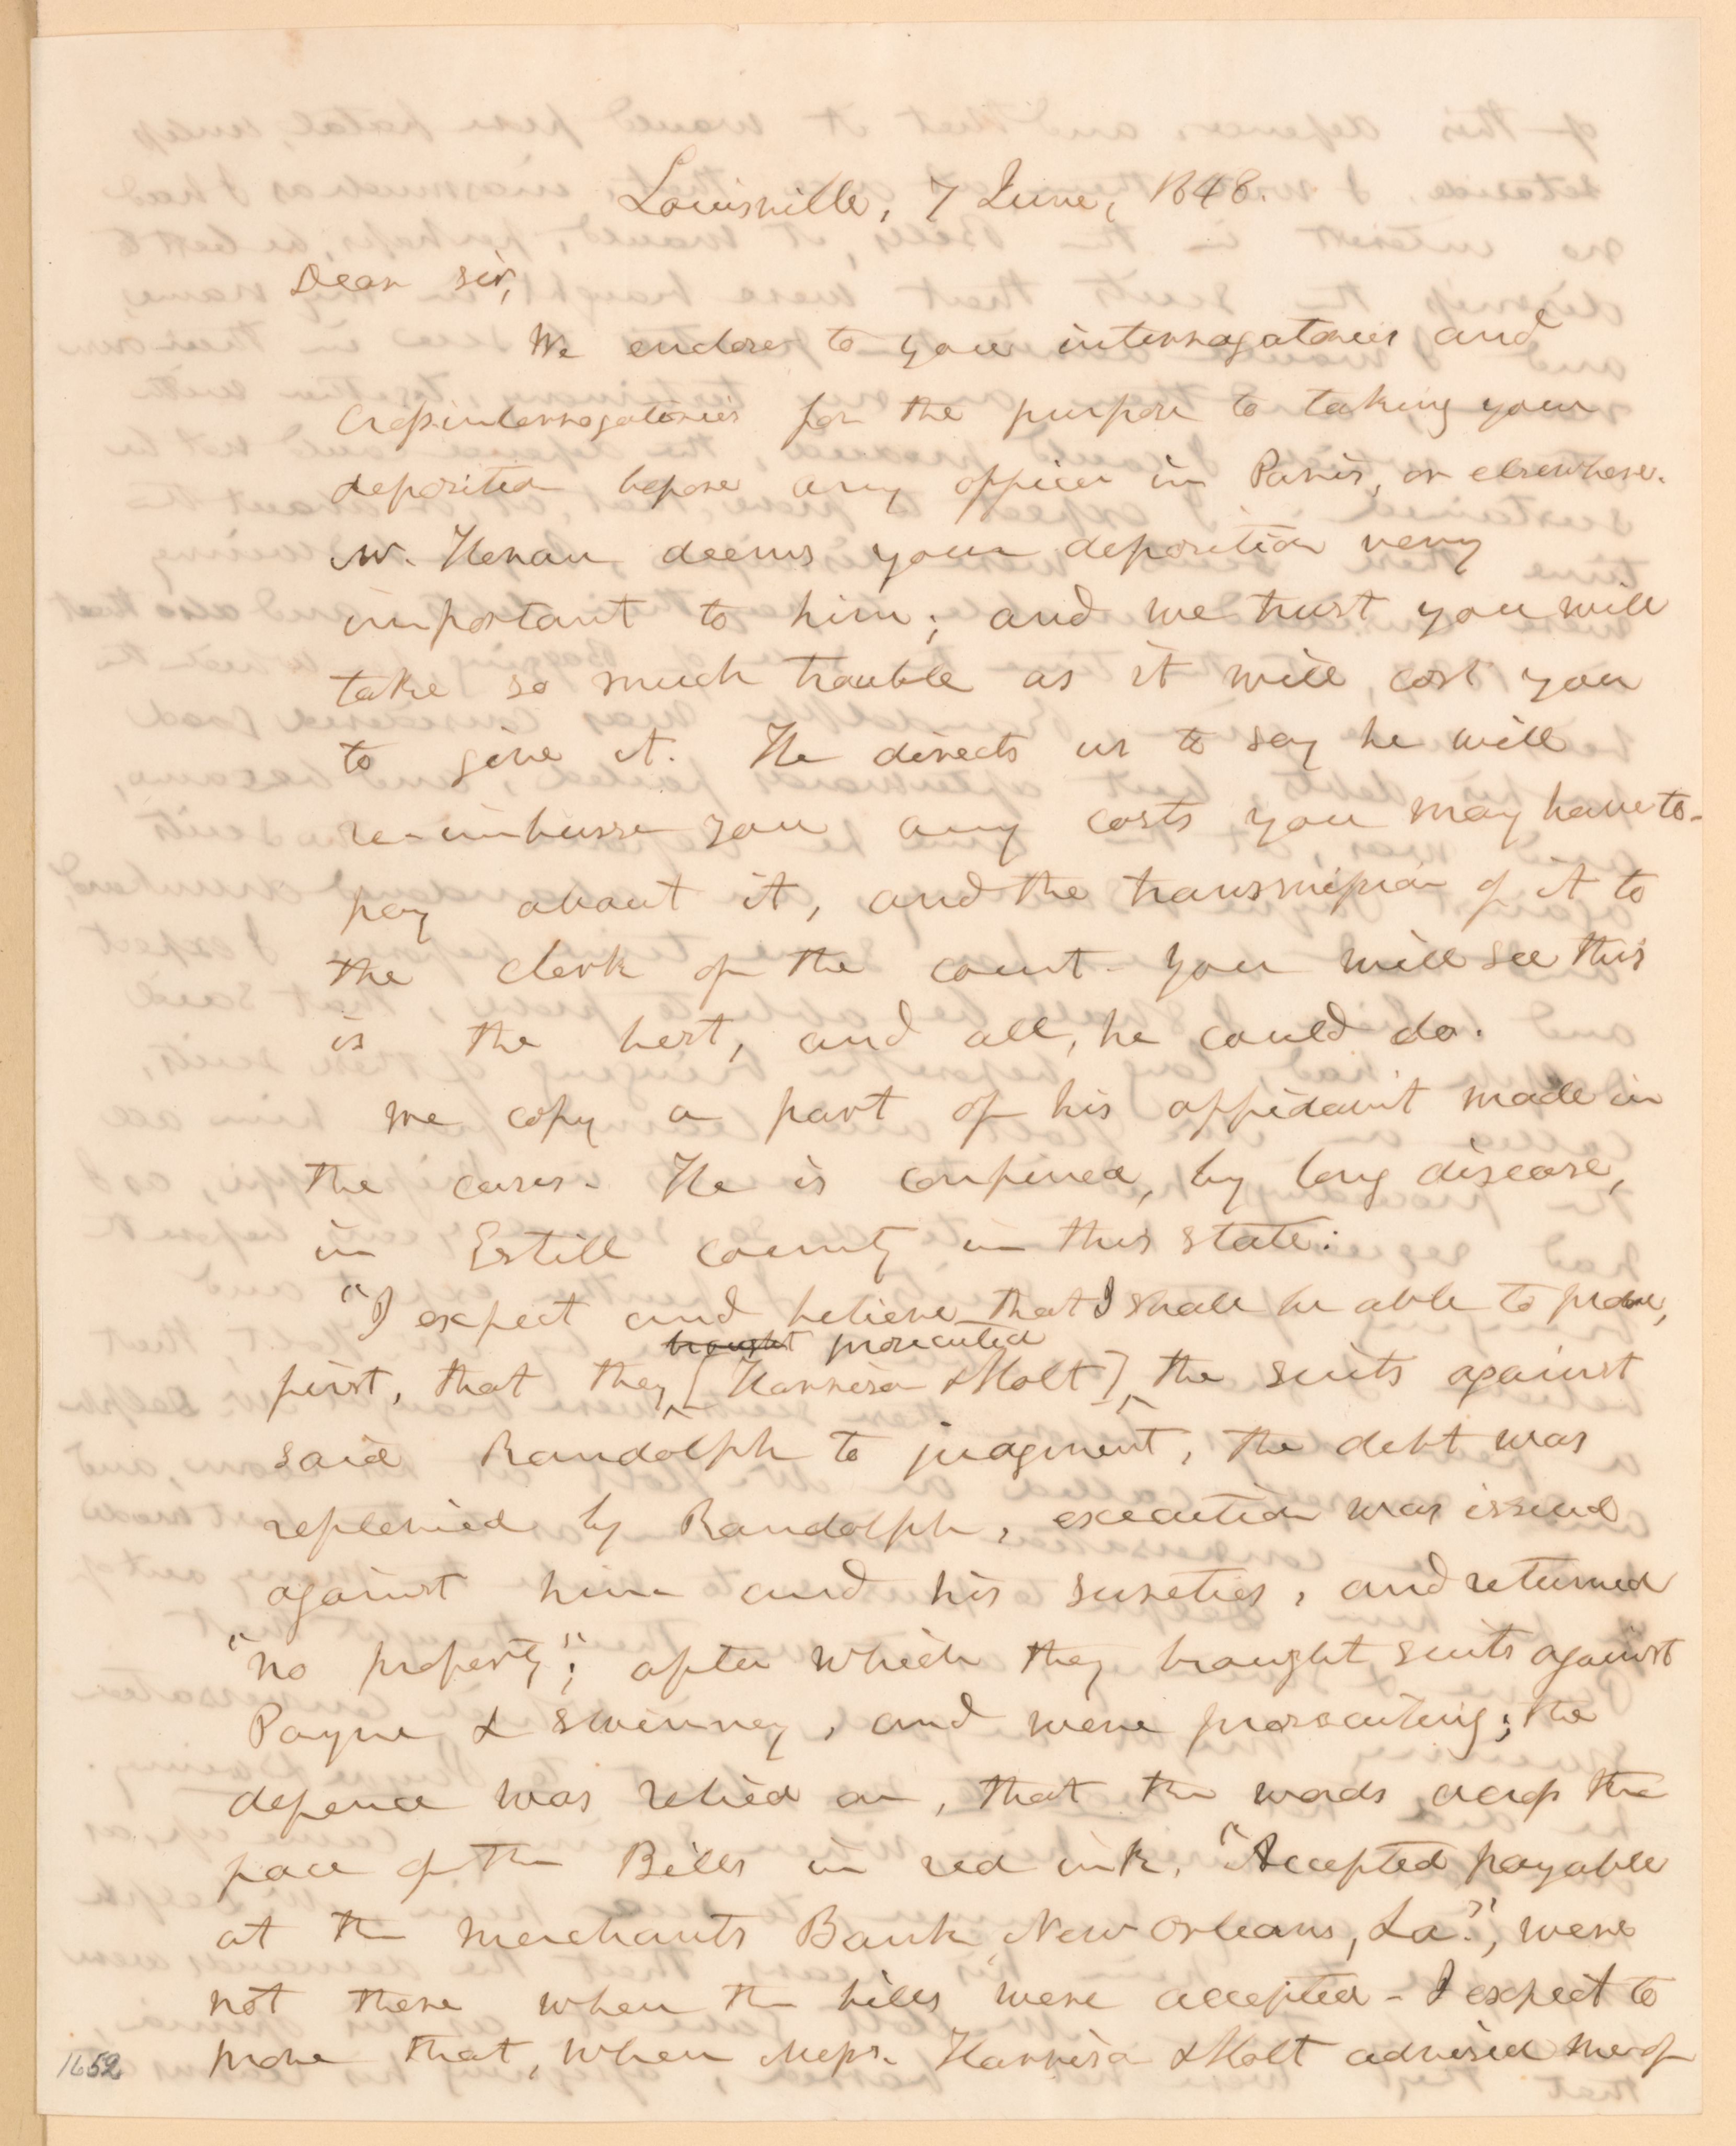 Louisville, 7 June, 1848.
Dear Sir,
We enclose to you interrogatories and
crossinterrogatories for the purpose to taking your
deposition before any officer in Paris, or elsewhere.
Mr. Henan deems your deposition very
important to him; and we trust you will
take so much trouble as it will cost you
to give it. He directs us to say he will
re-imburse you any costs you may have to
pay about it, and the transmission of it to
the clerk of the court. You will see this
is the best, and all, he could do.
We copy a part of his affidavit made in
the cases. He is confined, by long disease,
in Estill county in this state:
"I expect and believe that I shall be able to prove,
brought prosecuted
first, that they [Harrison & Holt] the suits against
said Randolph to judgment, the debt was
replevied by Randolph, execution was issued
against him and his sureties, and returned
"no property"; after which they brought suits against
Payne & Swinney, and were prosecuting; the
defence was relied on, that the words across the
face of the Bills in red ink, "Accepted payable
at the Merchants Bank New Orleans, La.", were
not there when the bills were accepted - I expect to
prove that, when Messrs. Harrison & Holt advised me of
1652